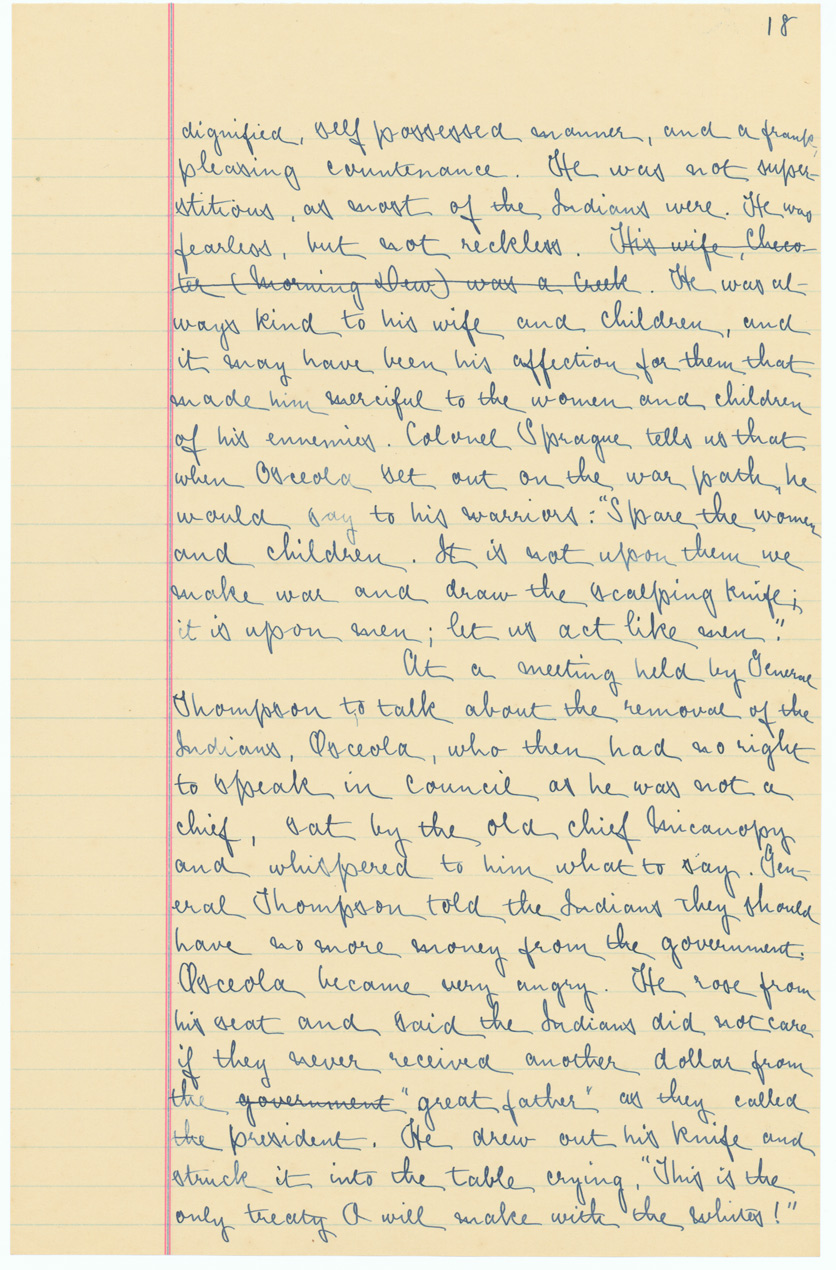 18
dignified, self possessed manner, and a frank,
pleasing countenance. He was not super-
stitious, as most of the Indians were. He was
fearless, but not reckless. His wife, Checo-
ter (Morning Dew) was a Creek. He was al-
ways kind to his wife and children, and
it may have been his affection for them that
made him merciful to the women and children
of his ennemies. Colonel Sprague tells us that
when Osceola set out on the war path, he
would say to his warriors: "Spare the women
and children. It is not upon them we
make war and draw the scalping knife;
it is upon men; let us act like men."
At a meeting held by General
Thompson to talk about the removal of the
Indians, Osceola, who then had no right
to speak in council as he was not a
chief, sat by the old chief Micanopy
and whispered to him what to say. Gen-
eral Thompson told the Indians they should
have no more money from the government.
Osceola became very angry. He rose from
his seat and said the Indians did not care
if they never received another dollar from
the government "great father" as they called
the president. He drew out his knife and
struck it into the table crying, "This is the
only treaty I will make with the whites!"